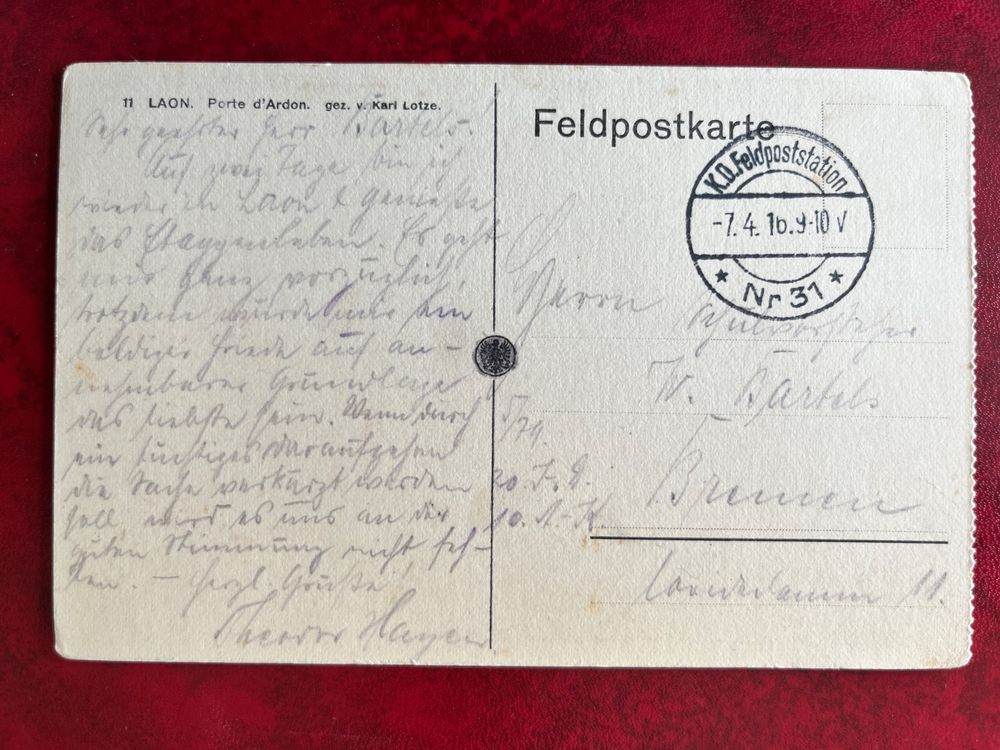 11 LAON. Porte d'Ardon. gez. v. Karl Lotze.
Sehr geehrter Herr Bartels.
Auf zwei Tage bin ich
wieder in Laon & genieße
das Etappenleben. Es geht
mir ganz vorzüglich,
trotzdem würde mir ein
baldiger Friede auf an-
nehmbarer Grundlage
das liebste sein. Wenn durch
ein tüchtiges Daraufgehen
die Sache verkürzt werden
soll, wird es uns an der
guten Stimmung nicht feh-
len. – Herzl. Grüße!
Theodor Hayen
Feldpostkarte
K.D. Feldpoststation
-7.4.16.9-10V
* Nr 31 *
Herrn
Schulvorsteher
W. Bartels
Bremen
11.
20. I. D.
10. A.-K.